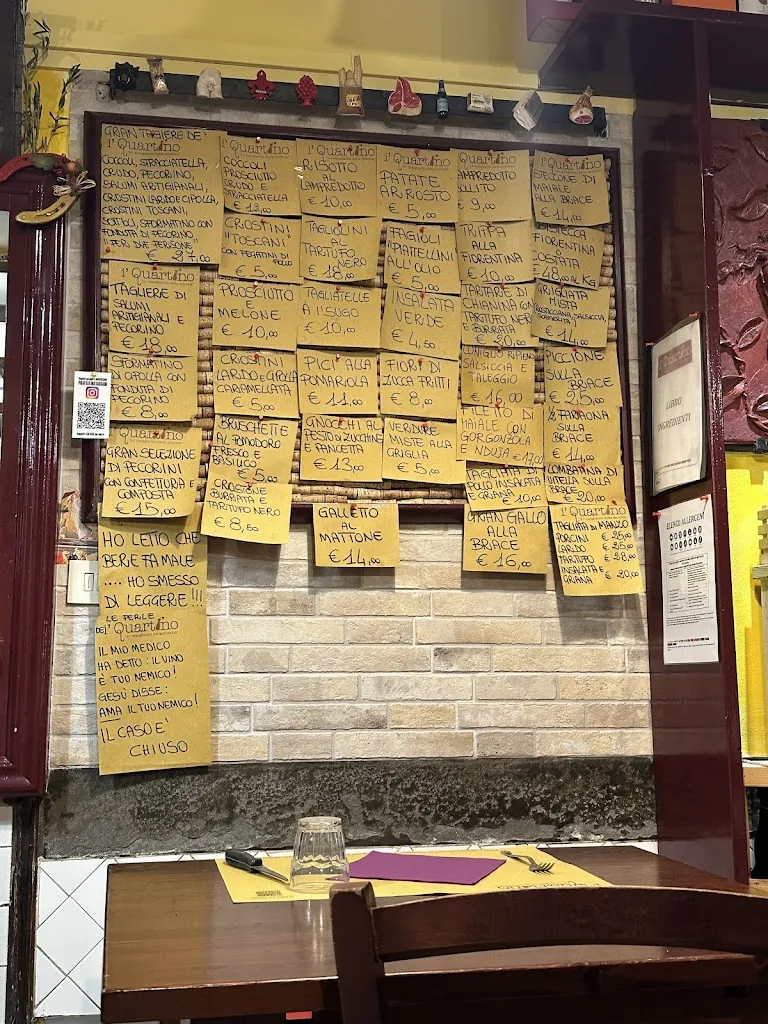 GRAN TAGLIERE DE'
i'Quartino
COCCOLI, STRACCIATELLA,
CRUDO, PECORINO,
SALUMI ARTIGIANALI,
CROSTINI LARDO E CIPOLLA,
CROSTINI TOSCANI,
SOTTOLI, SFORMATINO CON
FONDUTA DI PECORINO
"PER DUE PERSONE"
€ 27,00
i'Quartino
TAGLIERE DI
SALUMI
ARTIGIANALI E
PECORINO
€ 18,00
SFORMATINO
DI CIPOLLA CON
FONDUTA DI
PECORINO
€ 8,00
i'Quartino
GRAN SELEZIONE
DI PECORINI
CON CONFETTURA E
COMPOSTA
€ 15,00
HO LETTO CHE
BERE FA MALE
.... HO SMESSO
DI LEGGERE!!!
LE PERLE
DE i'Quartino
IL MIO MEDICO
HA DETTO: IL VINO
È TUO NEMICO!
GESÙ DISSE:
AMA IL TUO NEMICO!
IL CASO E'
CHIUSO
i'Quartino
COCCOLI
PROSCIUTO
CRUDO E
STRACCIATELLA
€ 13,00
CROSTINI
"TOSCANI
CON FEGATINI DI
POLLO
€ 5,00
PROSCIUTO
E
MELONE
€ 10,00
CROSTINI
LARDO E CIPOLLA
CARAMELLATA
€ 5,00
BRUSCHETTE
AL POMODORO
FRESCO E
BASILICO
€ 5,00
CROSTONE
BURRATA E
TARTUFO NERO
€ 8,50
i'Quartino
RISOTTO
AL
LAMPREDOTTO
€ 10,00
TAGLIOLINI
AL
TARTUFO
NERO
€ 18,00
TAGLIATELLE
A i'SUGO
€ 10,00
PICI ALLA
POMAROLA
€ 11,00
GNOCCHI AL
PESTO DI ZUCCHINE
E PANCETTA
€ 13,00
GALLETTO
AL
MATTONE
€ 14,00
i'Quartino
PATATE
ARROSTO
€ 5,00
FAGIOLI
"PIATTELLINI
ALL'OLIO
€ 5,00
INSALATA
VERDE
€ 4,50
FIORI DI
ZUCCA FRITTI
€ 8,00
VERDURE
MISTE ALLA
GRIGLIA
€ 5,00
Quartino
LAMPREDOTTO
BOLLITO
€ 9,00
TRIPPA
ALLA
FIORENTINA
€ 10,00
TARTARE DI
CHIANINA CON
TARTUFO NERO
E BURRATA
€ 20,00
CONIGLIO RIPIENO
SALSICCIA E
TALEGGIO
€ 16,00
FILETTO DI
MAIALE CON
GORGONZOLA
E NDUJA € 17,00
TAGLIATA DI
POLLO INSALATA
E GRANA € 10,00
GRAN GALLO
ALLA
BRACE
€ 16,00
i'Quartino
STECCONE DI
MAIALE
ALLA BRACE
€ 14,00
BISTECCA
FIORENTINA
COSTATA
€ 48,00 AL KG
GRIGLIATA
MISTA
ROSTICCIANA, SALSICCIA,
€ 14,00
PICCIONE
SULLA
BRACE
€ 25,00
½ FARAONA
SULLA
BRACE
€ 14,00
LOMBATINA DI
VITELLA SULLA
BRACE € 20,00
i'Quartino
TAGLIATA DI MANZO
PORCINI € 25,00
LARDO € 25,00
TARTUFO € 28,00
INSALATA E
GRANA € 20,00
LIBRO
INGREDIENTI
ELENCO ALLERGENI